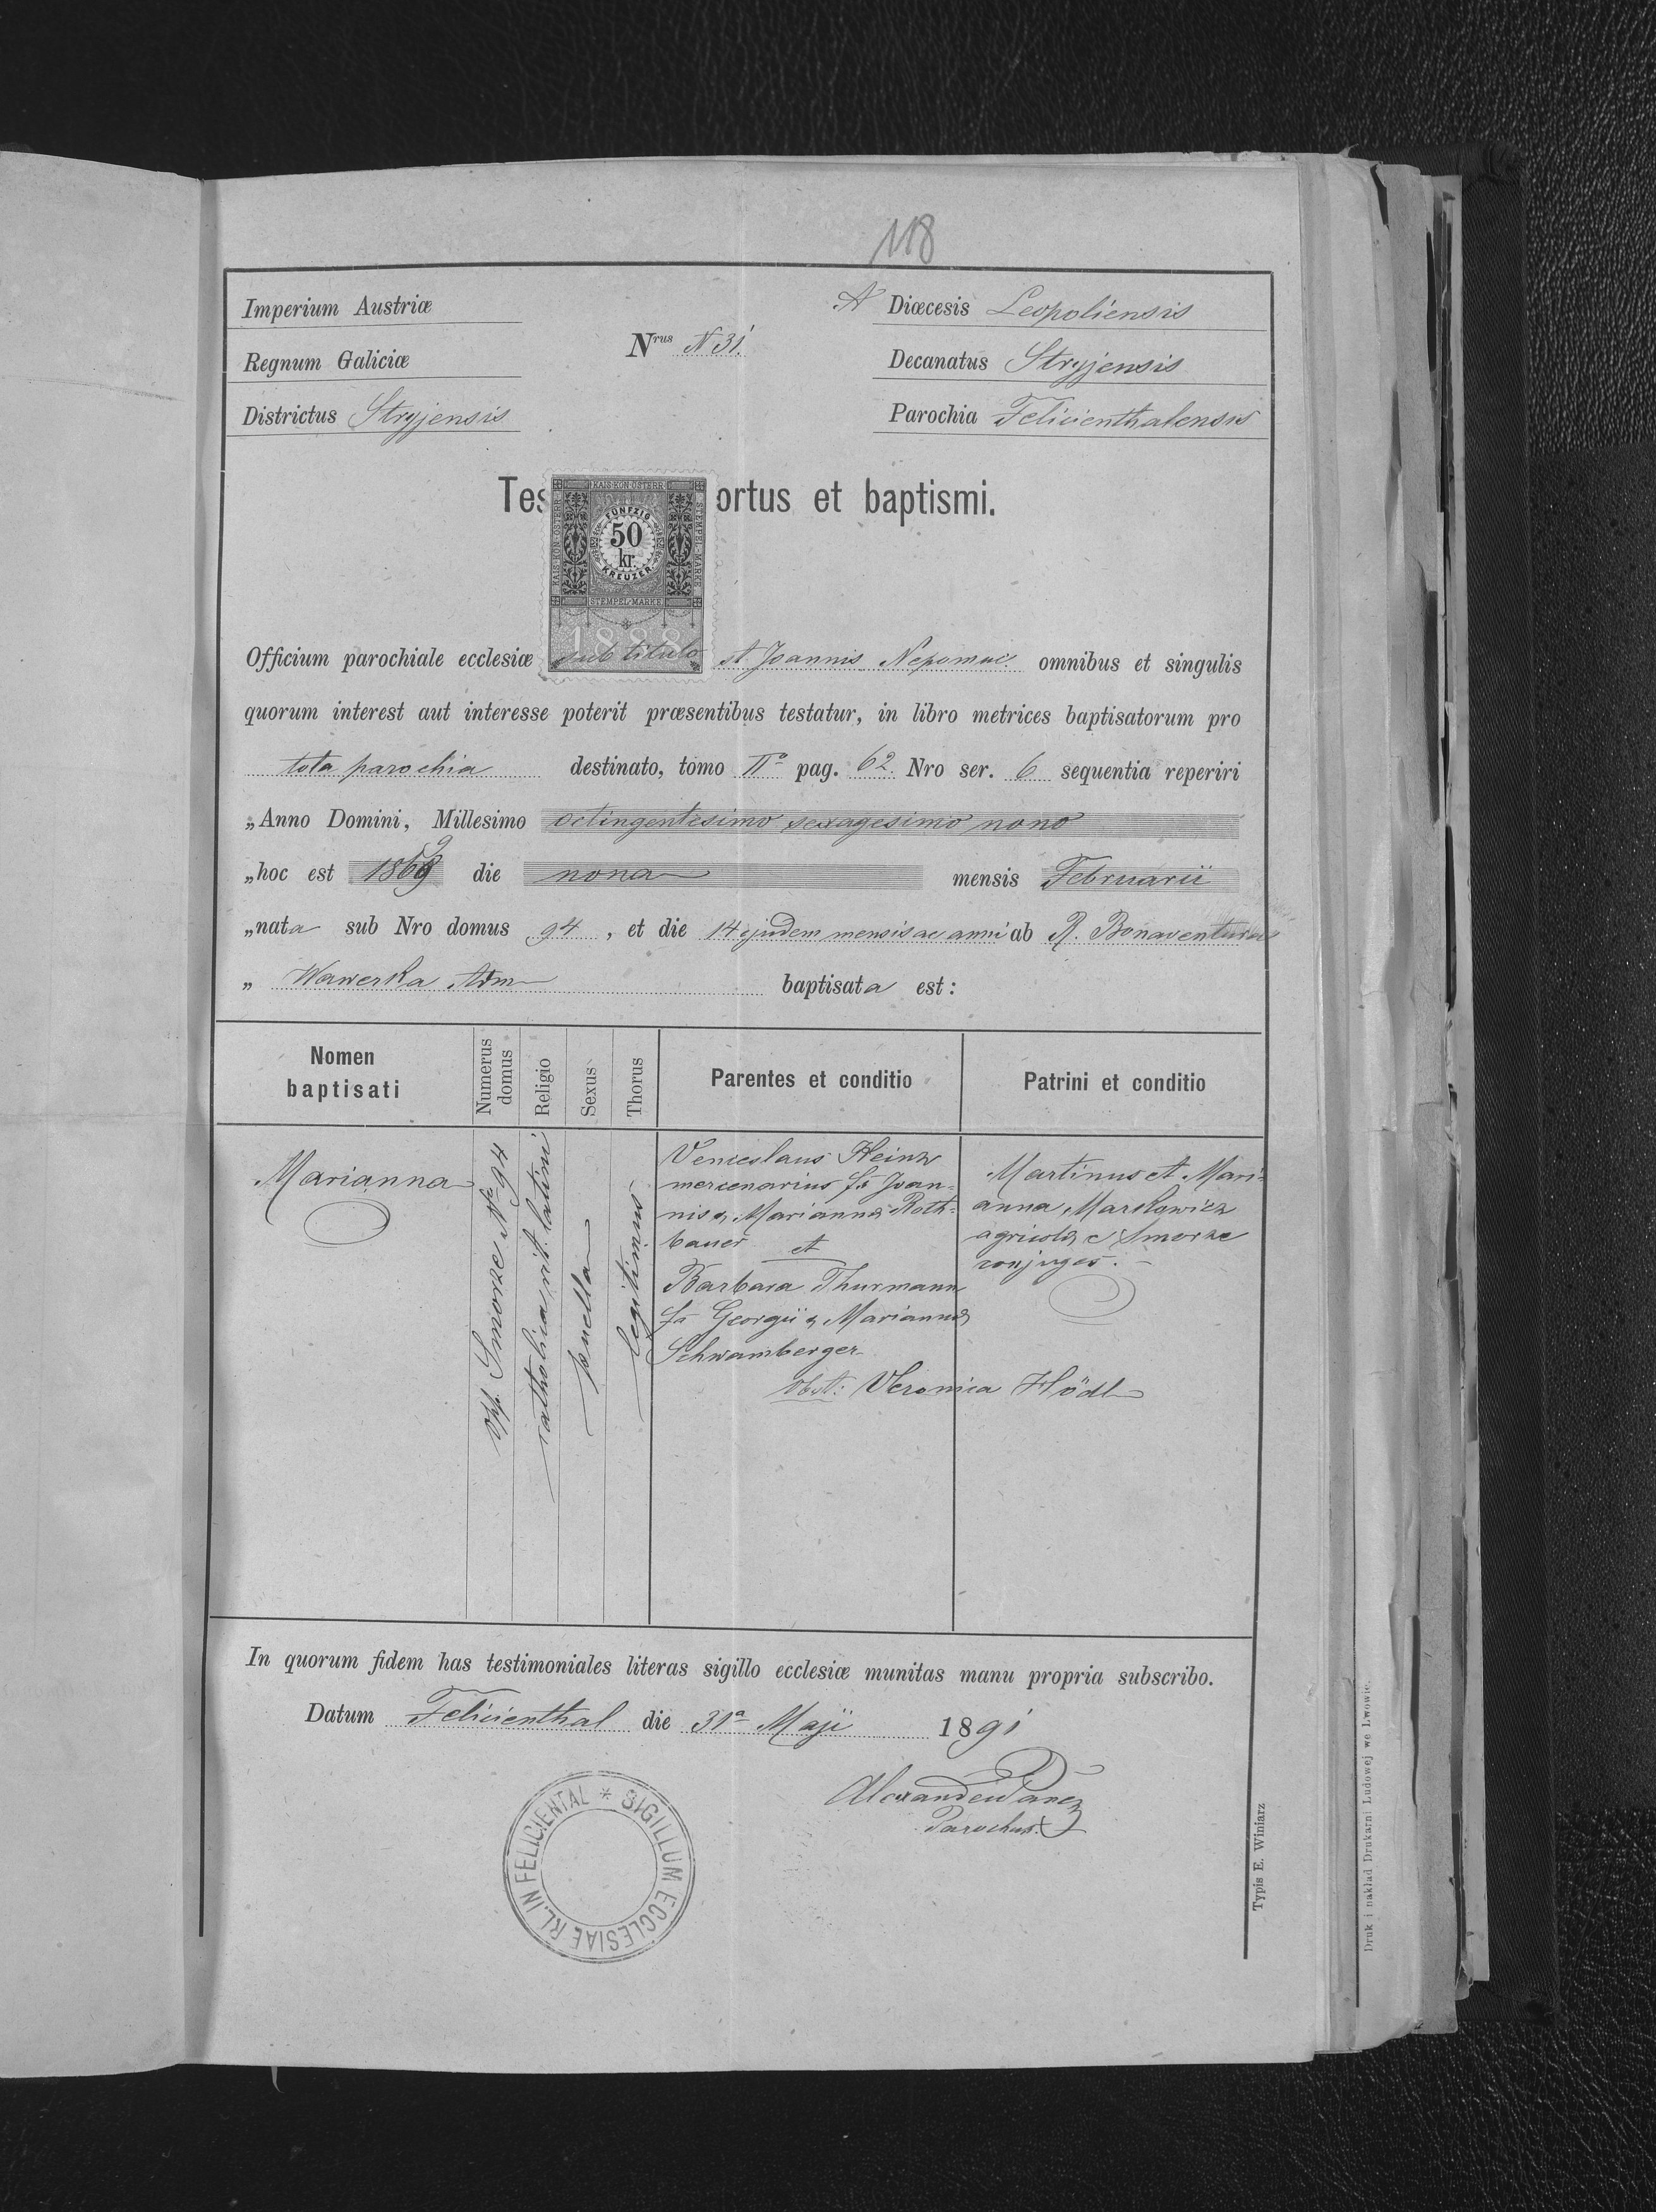 118
Imperium Austriæ
Nrus N 31.
A Diœcesis Leopoliensis
Regnum Galiciæ
Decanatus Stryjensis
Districtus Stryjensis
Parochia Felicienthalensis
Tes ortus et baptismi.
KAIS·KÖN·ÖSTERR
KAIS·KÖN·ÖSTERR·
STEMPEL-MARKE
FÜNFZIG
50
kr.
KREUZER
STEMPEL-MARKE
1888
Officium parochiale ecclesiæ sub titulo st Joannis Nepomuc. omnibus et singulis
quorum interest aut interesse poterit præsentibus testatur, in libro metrices baptisatorum pro
tota parochia destinato, tomo IIº pag. 62. Nro ser. 6 sequentia reperiri
„Anno Domini, Millesimo octingentesimo sexagesimo nono
„hoc est 1869 die nona mensis Februarii
„nata sub Nro domus 94, et die 14 ejusdem mensis ac anni ab R. Bonaventura
„ Wawerka Adm baptisata est:
Nomen
baptisati
Numerus
domus
Religio
Sexus
Thorus
Parentes et conditio
Patrini et conditio
Marianna
Opp. Smorze Nº 94
catholica rit. latini
puella
legitimus
Venceslaus Heinz
mercenarius fs Joan-
nis & Mariannæ Roth-
bauer et
Barbara Thurmann
fa Georgii & Mariannæ
Schwamberger
Martinus et Mari-
anna Markowicz
agricolæ e Smorze
conjuges.
Obst: Veronica Hödl
In quorum fidem has testimoniales literas sigillo ecclesiæ munitas manu propria subscribo.
Datum Felicienthal die 31ª Maji 1891
Parochus.
SIGILLUM ECCLESIAE R.L. IN FELICIENTAL *
Typis E. Winiarz
Druk i nakład Drukarni Ludowej we Lwowie.